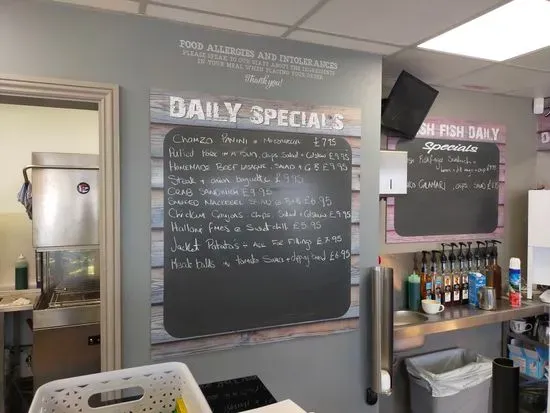 FOOD ALLERGIES AND INTOLERANCES
PLEASE SPEAK TO OUR STAFF ABOUT THE INGREDIENTS
IN YOUR MEAL WHEN PLACING YOUR ORDER
Thank you!
DAILY SPECIALS
Pulled Pork in a Bun, chips Salad + Coslaw £9.95
HOMEMADE BEEF LASAGNE, SALAD + G.B £9.95
Steak + onion baguette £9.95
CRAB SANDWICH £9.95
SMOKED MACKEREL SALAD £8.95
Chicken Goujons chips Salad + Coslaw £9.95
Halloumi FRIES w SWEET chilli £5.95
Jacket Potatoes - Ask For Fillings £7.95
Meat balls in tomato Sauce + dipping bread £6.95
SH FISH DAILY
Specials
Fish finger Sandwich
CALAMARI, chips SALAD